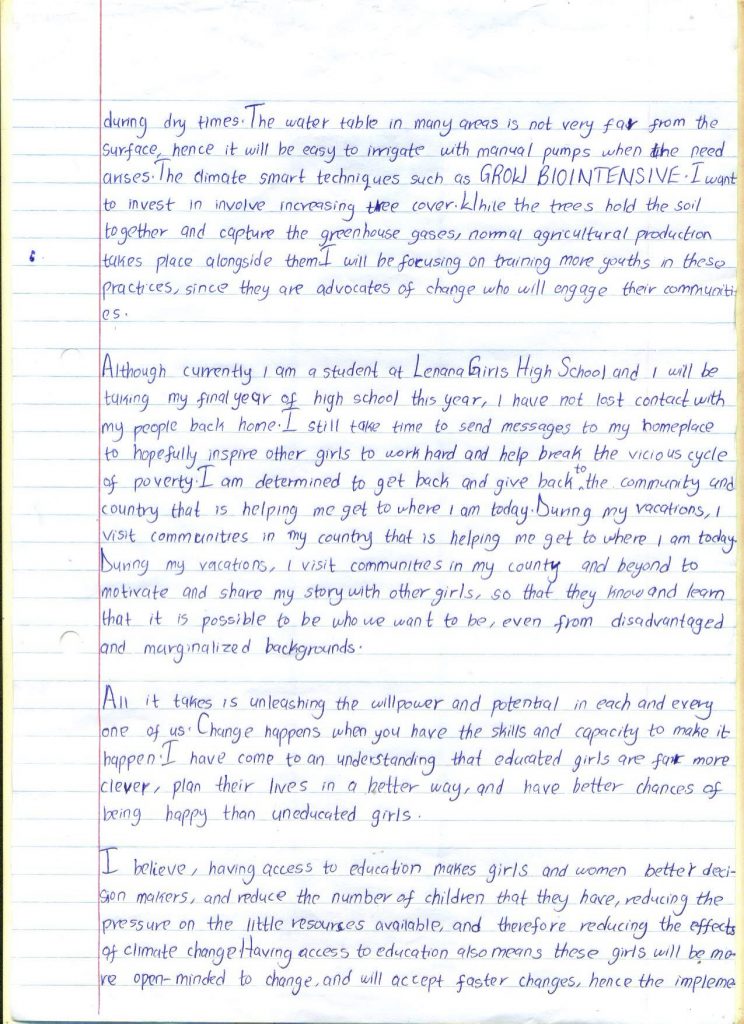 during dry times. The water table in many areas is not very far from the
surface, hence it will be easy to irrigate with manual pumps when the need
arises. The climate smart techniques such as GROW BIOINTENSIVE. I want
to invest in involve increasing tree cover. While the trees hold the soil
together and capture the greenhouse gases, normal agricultural production
takes place alongside them. I will be focusing on training more youths in these
practices, since they are advocates of change who will engage their communiti
es.
Although currently I am a student at Lenana Girls High School and I will be
taking my final year of high school this year, I have not lost contact with
my people back home. I still take time to send messages to my homeplace
to hopefully inspire other girls to work hard and help break the vicious cycle
of poverty. I am determined to get back and give back to the community and
country that is helping me get to where I am today. During my vacations, I
visit communities in my country that is helping me get to where I am today.
During my vacations, I visit communities in my county and beyond to
motivate and share my story with other girls, so that they know and learn
that it is possible to be who we want to be, even from disadvantaged
and marginalized backgrounds.
All it takes is unleashing the willpower and potential in each and every
one of us. Change happens when you have the skills and capacity to make it
happen. I have come to an understanding that educated girls are far more
clever, plan their lives in a better way, and have better chances of
being happy than uneducated girls.
I believe, having access to education makes girls and women better deci-
sion makers, and reduce the number of children that they have, reducing the
pressure on the little resources available, and therefore reducing the effects
of climate change. Having access to education also means these girls will be mo-
re open-minded to change, and will accept faster changes, hence the impleme